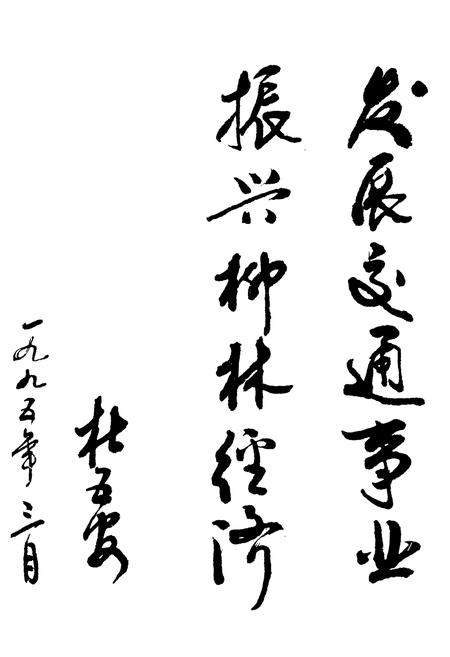 发展交通事业
振兴柳林经济
杜五安
一九九五年三月